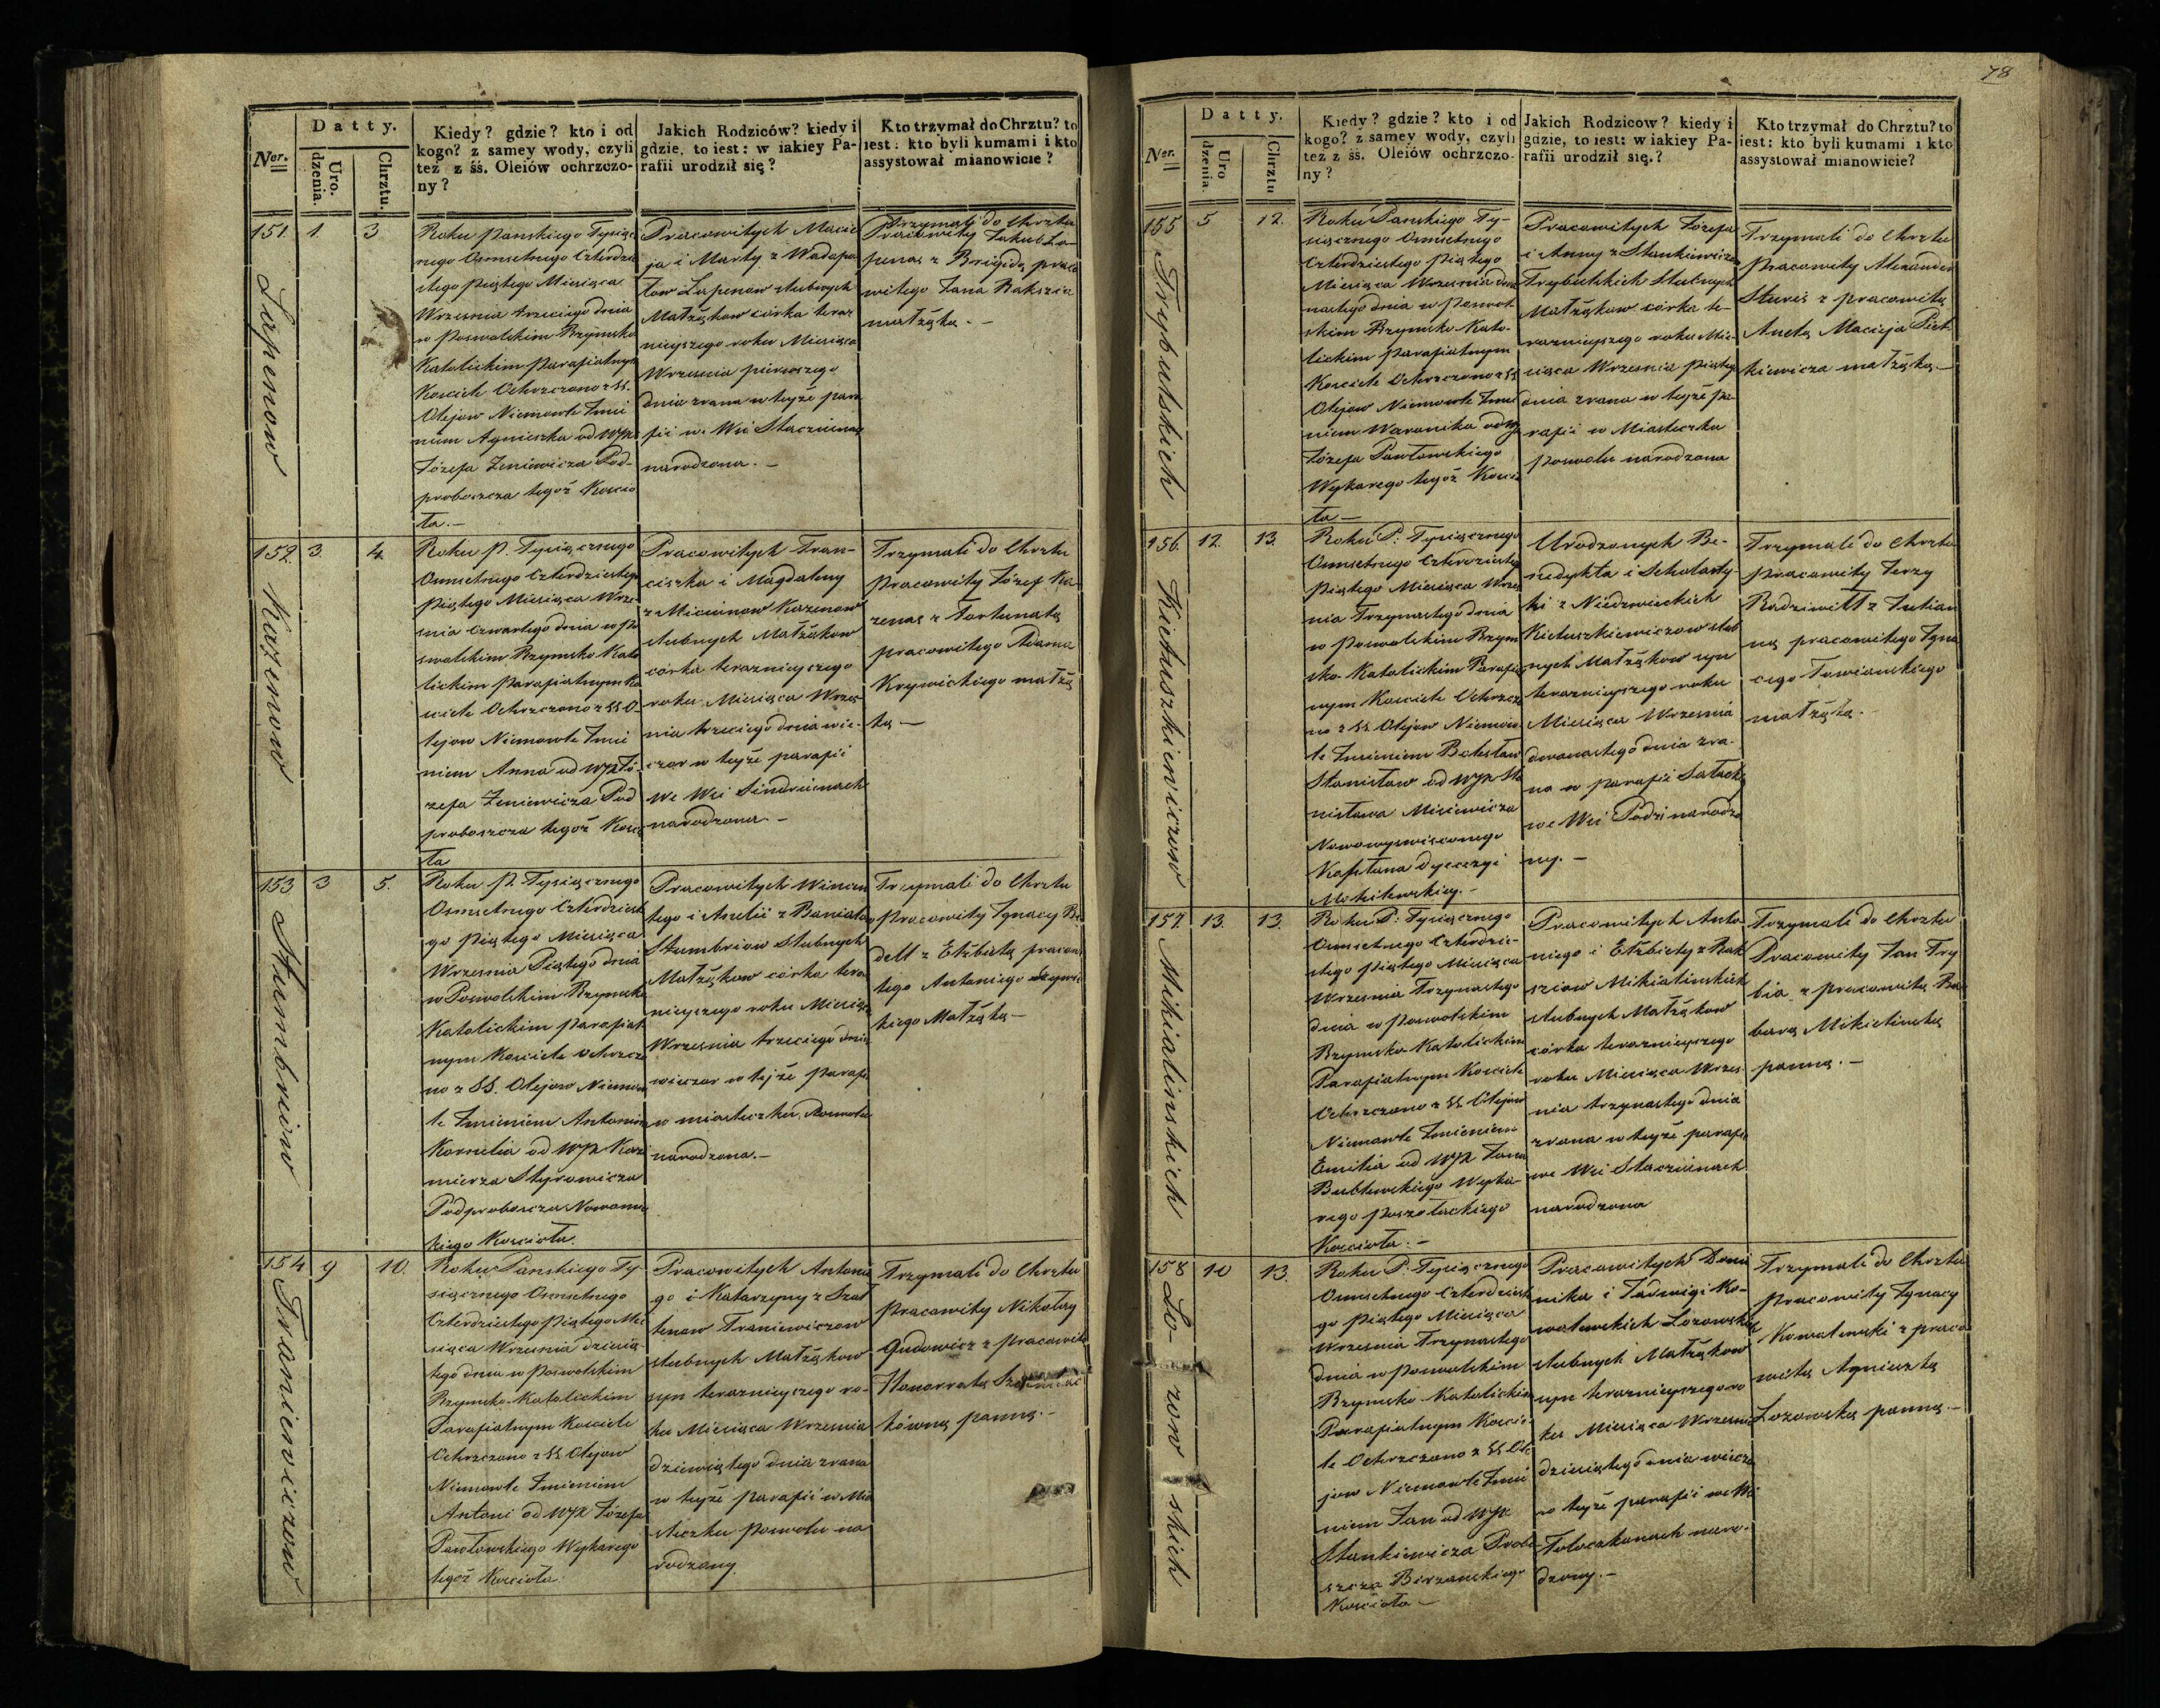 78
Datty.
Ner.
Uro.
dzenia.
Chrztu.
Kiedy? gdzie? kto i od
kogo? z samey wody, czyli
też z śś. Oleiów ochrzczo-
ny?
Jakich Rodziców? kiedy i
gdzie, to iest: w iakiey Pa-
rafii urodził się?
Kto trzymał do Chrztu? to
iest: kto byli kumami i kto
assystował mianowicie?
151.
1.
3
Łapenow
Roku Panskiego Tysiącz
nego Osmsetnego Czterdzie
stego piątego Miesiąca
Wrzesnia trzeciego dnia
w Poswolskim Rzymsko
Katolickim parafialnym
Kosciele Ochrzczono z SS.
Olejow Niemowle Imie
niem Agnieszka od WJX
Józefa Zeniewicza Pod-
proboszcza tegoż Koscio
ła.—
Pracowitych Macie
ja i Marty z Wadapa
łow Łapenow slubnych
Małżąkow córka teraz
nieyszego roku Miesiąca
Wrzesnia pierwszego
dnia zrana w teyże para
fii we Wsi Staczunach
narodzona.—
Trzymali do Chrztu
Pracowity Jakub Ła-
penas z Brigidą praco
witego Jana Rakszia
małżąką.—
152.
3.
4.
Kazenow
Roku P. Tysiącznego
Osmsetnego Czterdziestego
Piątego Miesiąca Wrze
snia Czwartego dnia w Po
swolskim Rzymsko Kato
lickim Parafialnym Ko
sciele Ochrzczono z SS O-
lejow Niemowle Imie
niem Anna od WJX Jó-
zefa Zeniewicza Pod
proboszcza tegoż Koscio
ła
Pracowitych Fran-
ciszka i Magdaleny
z Miciunow Kazenow
slubnych Małżąkow
córka teraznieyszego
roku Miesiąca Wrzes
nia trzeciego dnia wie-
czor w teyże parafii
we Wsi Sindriunach
narodzona.—
Trzymali do Chrztu
Pracowity Józef Ka-
zenas z Fortunatą
pracowitego Adama
Krywickiego małżą
ką—
153
3
5.
Stumbriow
Roku P. Tysiącznego
Osmsetnego Czterdziest
go Piątego Miesiąca
Wrzesnia Piątego dnia
w Poswolskim Rzymsko
Katolickim parafial
nym Kosciele Ochrzczo
no z SS. Olejow Niemow
le Imieniem Antonina
Kornelia od WJX Kazi
mierza Styrowicza
Podproboszcza Nowomie
skiego Kosciola.
Pracowitych Wincen
tego i Anelii z Baniulow
Stumbriow Slubnych
Małżąkow córka teraz
nieyszego roku Miesiąca
Wrzesnia trzeciego dnia
wieczor w tejże parafii
w miasteczku Poswolu
narodzona.—
Trzymali do Chrztu
pracowity Ignacy Be
dell z Elżbietą pracowi
tego Antoniego
kiego Małżąką—
154
9
10.
Franiewiczow
Roku Panskiego Ty-
siącznego Osmsetnego
Czterdziestego piątego Mie
siąca Wrzesnia dziesią
tego dnia w Poswolskim
Rzymsko-Katolickim
Parafialnym Kosciele
Ochrzczono z SS Olejow
Niemowle Imieniem
Antoni od WJX Józefa
Pawłowskiego Wykarego
tegoż Kosciola.
Pracowitych Antonie
go i Katarzyny z Szal
tenow Franiewiczow
slubnych Małżąkow
syn teraznieyszego ro-
ku Miesiąca Wrzesnia
dziewiątego dnia zrana
w teyże parafii w Mia
steczku Poswolu na
rodzony.
Trzymali do Chrztu
pracowity Nikolay
Gudowicz z pracowitą
Honorratą
kówną panną.—
Datty.
Ner.
Uro
dzenia.
Chrztu
Kiedy? gdzie? kto i od
kogo? z samey wody, czyli
też z śś. Oleiów ochrzczo-
ny?
Jakich Rodzicow? kiedy i
gdzie, to iest: w iakiey Pa-
rafii urodził się.?
Kto trzymał do Chrztu? to
iest: kto byli kumami i kto
assystował mianowicie?
155
5
12.
Trybulskich
Roku Panskiego Ty-
siącznego Osmsetnego
Czterdziestego Piątego
Miesiąca Wrzesnia dwu
nastego dnia w Poswol
skim Rzymsko Kato-
lickim parafialnym
Kosciele Ochrzczono z SS
Olejow Niemowle Imie
niem Waronika od WJX
Józefa Pawłowskiego
Wykarego tegoż Koscio
ła—
Pracowitych Józefa
i Anny z Stankiewiczow
Trybulskich Slubnych
Małżąkow córka te-
raznieyszego roku Mie-
siąca Wrzesnia piątego
dnia zrana w teyże pa-
rafii w Miasteczku
Poswolu narodzona
Trzymali do Chrztu
Pracowity Alexander
Sturis z pracowitą
Anetą Macieja Piet
kiewicza małżąką.—
156.
12.
13.
Kietuszkiewiczow
Roku P: Tysiącznego
Osmsetnego Czterdziestego
Piątego Miesiąca Wrzes
nia Trzynastego dnia
w Poswolskim Rzym
sko-Katolickim Parafial
nym Kosciele Ochrzczo
no z SS. Olejow Niemow
le Imieniem Bolesław
Stanisław od WJX Sta
nisława Misiewicza
Nowowyswięconego
Kapłana Dyecezyi
Mohilewskiey.—
Urodzonych Be-
nedykta i Scholasty-
ki z Niedzwieckich
Kietuszkiewiczow slub
nych Małżąkow syn
teraznieyszego roku
Miesiąca Wrzesnia
dwunastego dnia zra-
na w parafii Sałackiey
we Wsi Podzi narodzo
ny.—
Trzymali do Chrztu
pracowity Jerzy
Radziwiłł z Julian
ną pracowitego Igna
cego Towianskiego
małżąką.—
157.
13.
13.
Mikialinskich
Roku P: Tysiącznego
Osmsetnego Czterdzie-
stego piątego Miesiąca
Wrzesnia Trzynastego
dnia w Poswolskim
Rzymsko-Katolickim
Parafialnym Kosciele
Ochrzczono z SS Olejow
Niemowle Imieniem
Emilia od WJX Jana
Bublewskiego Wyka-
rego Poszołackiego
Kosciola.—
Pracowitych Anto
niego i Elżbiety z Rak
sziow Mikialinskich
slubnych Małżąkow
córka teraznieyszego
roku Miesiąca Wrzes-
nia trzynastego dnia
zrana w teyże parafii
we Wsi Staczunach
narodzona
Trzymali do Chrztu
Pracowity Jan Try
bia z pracowitą Bar
barą Mikielinską
panną.—
158
10
13.
Lozorowskich
Roku P: Tysiącznego
Osmsetnego Czterdzieste
go piątego Miesiąca
Wrzesnia Trzynastego
dnia w Poswolskim
Rzymsko-Katolickim
Parafialnym Koscie-
le Ochrzczono z SS Ole
jow Niemowle Imie
niem Jan od WJX
Stankiewicza Probo
szcza Birżanskiego
Kosciola—
Pracowitych Domi
nika i Jadwigi Ko-
walewskich Lozowskich
slubnych Małżąkow
syn teraznieyszego ro
ku Miesiąca Wrzesnia
dziesiątego dnia wieczor
w teyże parafii we Wsi
Toloczkanach naro-
dzony.—
Trzymali do Chrztu
pracowity Ignacy
Kowalewski z praco
witą Agnieszką
Lozowską panną.—